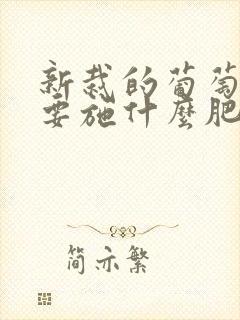 新栽的葡萄
要施什麼肥
简亦繁